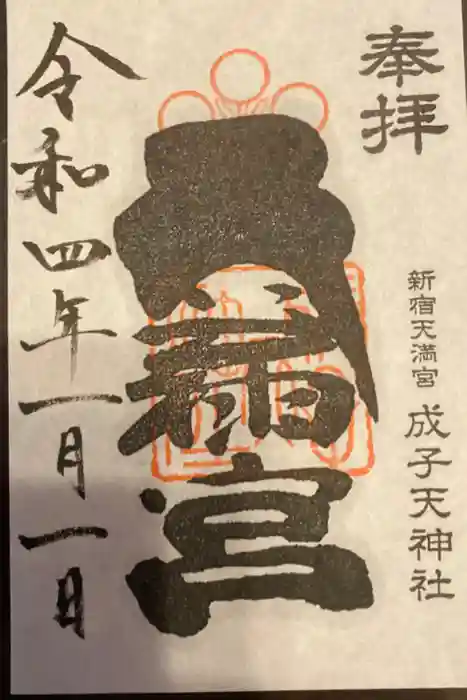 奉拝
新宿天満宮 成子天神社
宮
令和四年一月一日